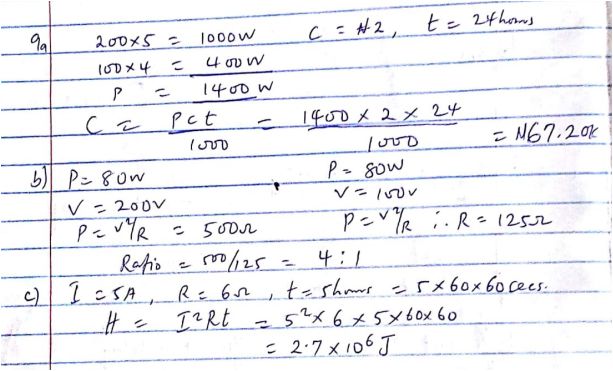 9a 200×5 = 1000W C = ₦2, t = 24hours
100×4 = 400W
P = 1400W
C = Pct/1000 = 1400 × 2 × 24/1000 = ₦67.20k
b) P = 80W P = 80W
V = 200V V = 100V
P = V²/R = 500Ω P = V²/R ∴ R = 125Ω
Ratio = 500/125 = 4:1
c) I = 5A, R = 6Ω, t = 5hours = 5×60×60 secs.
H = I²Rt = 5² × 6 × 5 × 60 × 60
= 2.7 × 10⁶ J